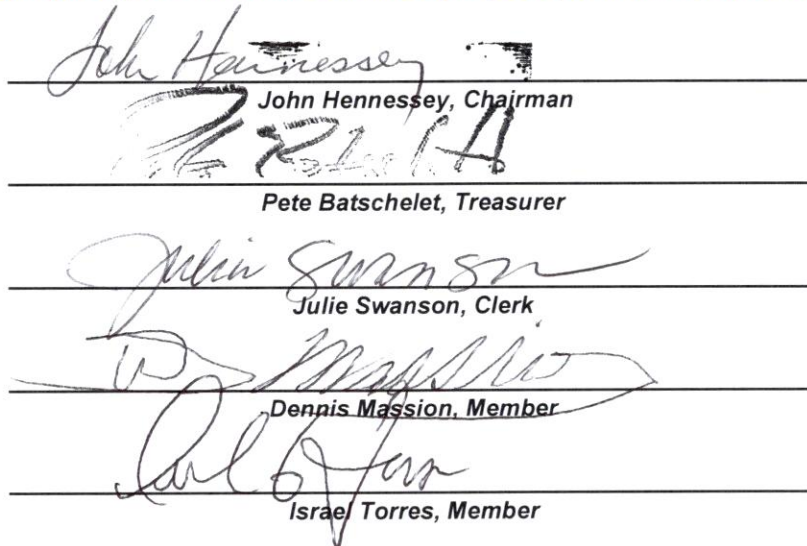 John Hennessey
John Hennessey, Chairman
Pete Batschelet, Treasurer
Julie Swanson
Julie Swanson, Clerk
Massion
Dennis Massion, Member
Israel Torres, Member